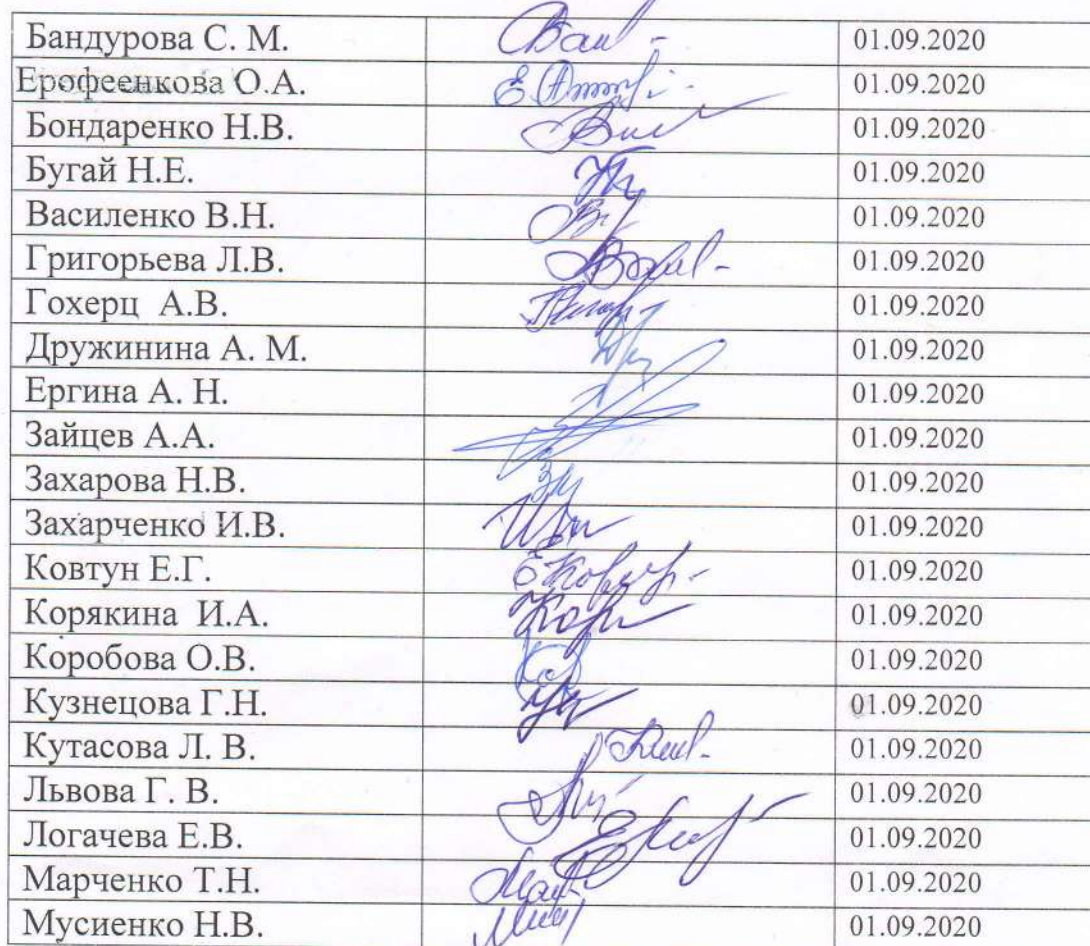 Бандурова С. М. 01.09.2020
Ерофеенкова О.А. 01.09.2020
Бондаренко Н.В. 01.09.2020
Бугай Н.Е. 01.09.2020
Василенко В.Н. 01.09.2020
Григорьева Л.В. 01.09.2020
Гохерц А.В. 01.09.2020
Дружинина А. М. 01.09.2020
Ергина А. Н. 01.09.2020
Зайцев А.А. 01.09.2020
Захарова Н.В. 01.09.2020
Захарченко И.В. 01.09.2020
Ковтун Е.Г. 01.09.2020
Корякина И.А. 01.09.2020
Коробова О.В. 01.09.2020
Кузнецова Г.Н. 01.09.2020
Кутасова Л. В. 01.09.2020
Львова Г. В. 01.09.2020
Логачева Е.В. 01.09.2020
Марченко Т.Н. 01.09.2020
Мусиенко Н.В. 01.09.2020